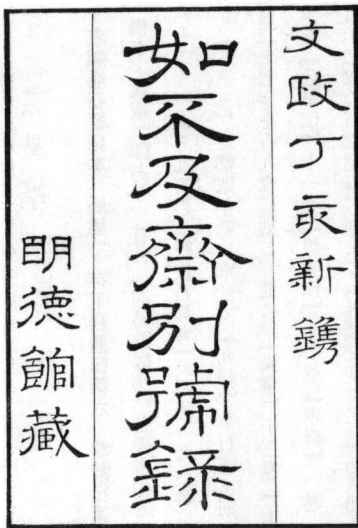 文政丁亥新鐫
如不及齋別號錄
明徳館藏